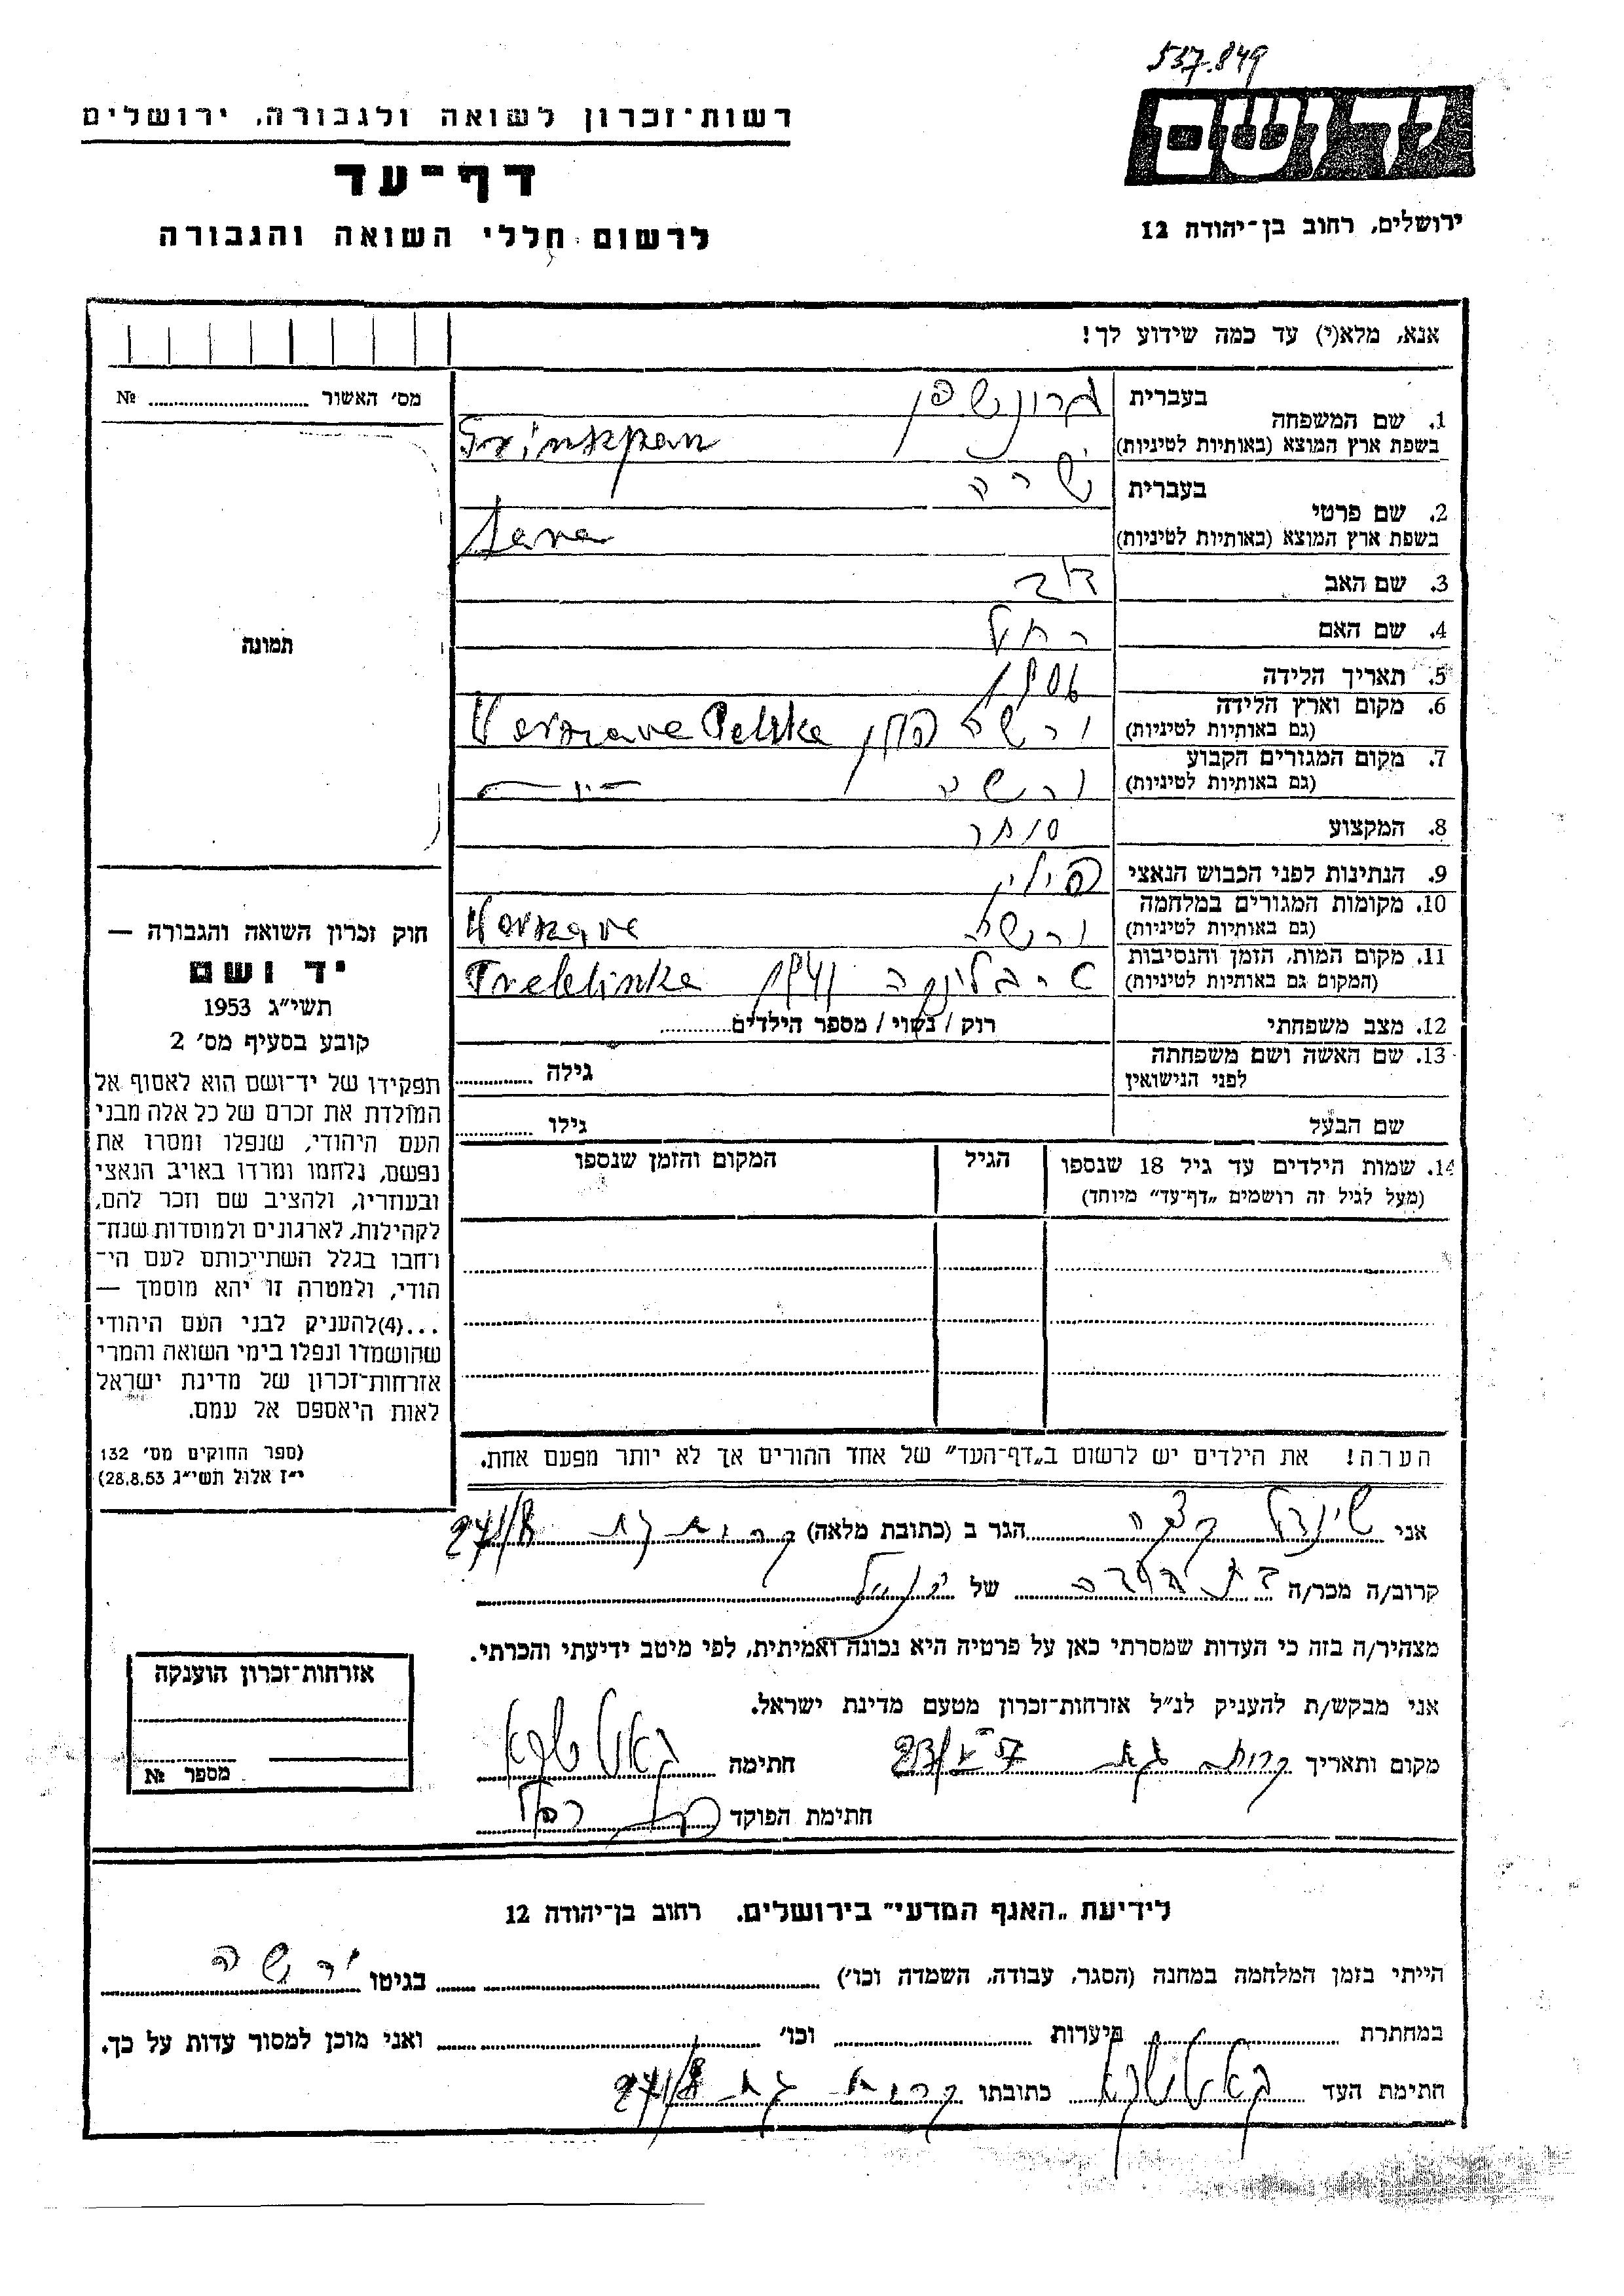 537.849
יד ושם
ירושלים, רחוב בן־יהודה 12
רשות־זכרון לשואה ולגבורה, ירושלים
דף־עד
לרשום חללי השואה והגבורה
אנא, מלא(י) עד כמה שידוע לך!
מס׳ האשור № 
תמונה
1. שם המשפחה
בעברית גרונשפן
בשפת ארץ המוצא (באותיות לטיניות) Grinszpan
2. שם פרטי
בעברית שרה
בשפת ארץ המוצא (באותיות לטיניות) Sara
3. שם האב דוד
4. שם האם רחל
5. תאריך הלידה
6. מקום וארץ הלידה
(גם באותיות לטיניות) ורשה פולין Warszawa Polska
7. מקום המגורים הקבוע
(גם באותיות לטיניות) ורשה —״—
8. המקצוע סוחר
9. הנתינות לפני הכבוש הנאצי פולין
10. מקומות המגורים במלחמה
(גם באותיות לטיניות) ורשה Warszawa
11. מקום המות, הזמן והנסיבות
(המקום גם באותיות לטיניות) טרבלינקה 1941 Treblinka
12. מצב משפחתי רוק / נשוי / מספר הילדים
13. שם האשה ושם משפחתה
לפני הנישואין גילה
שם הבעל גילו
14. שמות הילדים עד גיל 18 שנספו הגיל המקום והזמן שנספו
(מעל לגיל זה רושמים „דף־עד״ מיוחד)
הערה! את הילדים יש לרשום ב„דף־העד״ של אחד ההורים אך לא יותר מפעם אחת.
חוק זכרון השואה והגבורה —
יד ושם
תשי״ג 1953
קובע בסעיף מס׳ 2
תפקידו של יד־ושם הוא לאסוף אל
המולדת את זכרם של כל אלה מבני
העם היהודי, שנפלו ומסרו את
נפשם, נלחמו ומרדו באויב הנאצי
ובעוזריו, ולהציב שם וזכר להם,
לקהילות, לארגונים ולמוסדות שנח־
רחבו בגלל השתייכותם לעם הי־
הודי, ולמטרה זו יהא מוסמך —
...(4)להעניק לבני העם היהודי
שהושמדו ונפלו בימי השואה והמרי
אזרחות־זכרון של מדינת ישראל
לאות היאספם אל עמם.
(ספר החוקים מס׳ 132
י״ז אלול תשי״ג 28.8.53)
אני הגר ב (כתובת מלאה) קרית גת 24/8
קרוב/ה מכר/ה בת דודה של הנ״ל
מצהיר/ה בזה כי העדות שמסרתי כאן על פרטיה היא נכונה ואמיתית, לפי מיטב ידיעתי והכרתי.
אני מבקש/ת להעניק לנ״ל אזרחות־זכרון מטעם מדינת ישראל.
מקום ותאריך קרית גת חתימה
חתימת הפוקד
אזרחות־זכרון הוענקה
מספר №
לידיעת „האגף המדעי״ בירושלים. רחוב בן־יהודה 12
הייתי בזמן המלחמה במחנה (הסגר, עבודה, השמדה וכו׳) בגיטו ורשה
במחתרת ביערות וכו׳ ואני מוכן למסור עדות על כך.
חתימת העד כתובתו קרית גת 24/8